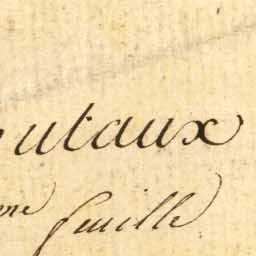 outaux
me feuille